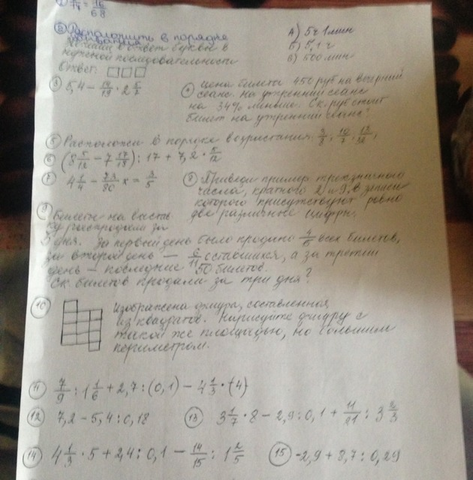 ② Расположить в порядке
убывания
ответ буквы в
нужной последовательности
Ответ: □□□
А) 5ч 1мин
Б) 5,1 ч
В) 500 мин
③ 5,4 − 2 5/7
④ Цена билета 450 руб на вечерний
сеанс. На утренний сеанс
на 34% меньше. Ск. руб стоит
билет на утренний сеанс?
⑤ Расположи в порядке возрастания:
⑥ (5 5/12 − 7 17/18) : 17 + 7,2 · 5/12
⑦ 4 1/4 − x = 3/5
⑧ Приведи пример трёхзначного
числа, кратного 2 и 9, в записи
которого присутствуют ровно
две различные цифры.
⑨ Билеты на выст.
распродали за
3 дня. За первый день было продано всех билетов,
за второй день — оставшихся, а за третий
день — последние 50 билетов.
Ск. билетов продали за три дня?
⑩ Изображена фигура, составленная
из квадратов. Нарисуйте фигуру с
такой же площадью, но большим
периметром.
⑪ 7/9 : 1 1/6 + 2,7 : (0,1) − 4 1/3 · (4)
⑫ 7,2 − 5,4 : 0,18
⑬ 3 1/7 · 8 − 2,9 : 0,1 + 11/21 : 3 2/3
⑭ 4 1/3 · 5 + 2,4 : 0,1 − 14/15 : 1 2/5
⑮ -2,9 + 8,7 : 0,29